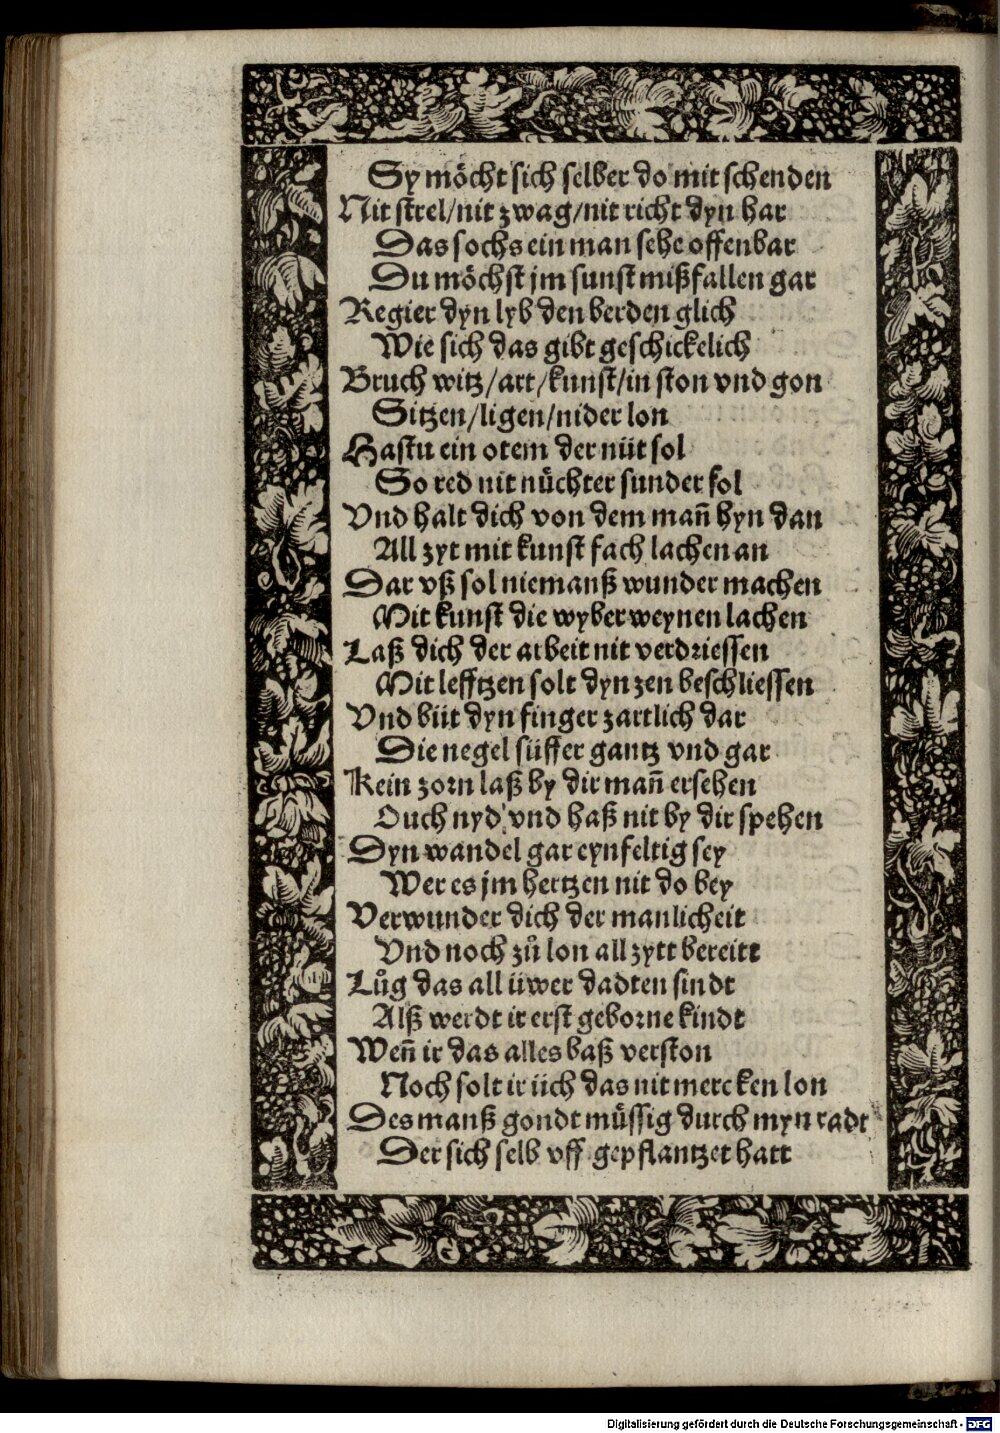 Sy möcht sich selber do mit schenden
Nit strel/nit zwag/nit richt dyn har
Das sochs ein man sehe offenbar
Du möchst jm sunst mißfallen gar
Regier dyn lyb den berden glich
Wie sich das gibt geschickelich
Bruch witz/art/kunst/in ston vnd gon
Sitzen/ligen/nider lon
Hastu ein otem der nüt sol
So red nit nüchter sunder fol
Vnd halt dich von dem mañ hyn dan
All zyt mit kunst fach lachen an
Dar vß sol niemanß wunder machen
Mit kunst die wyber weynen lachen
Laß dich der arbeit nit verdriessen
Mit lefftzen solt dyn zen beschliessen
Vnd büt dyn finger zartlich dar
Die negel süffer gantz vnd gar
Kein zorn laß by dir mañ ersehen
Ouch nyd vnd haß nit by dir spehen
Dyn wandel gar eynfeltig sey
Wer es jm hertzen nit do bey
Verwunder dich der manlicheit
Vnd noch zů lon all zytt bereitt
Lůg das all üwer dadten sindt
Alß werdt ir erst geborne kindt
Weñ ir das alles baß verston
Noch solt ir üch das nit mercken lon
Des manß gondt müssig durch myn radt
Der sich selb vff gepflantzet hatt
Digitalisierung gefördert durch die Deutsche Forschungsgemeinschaft - DFG